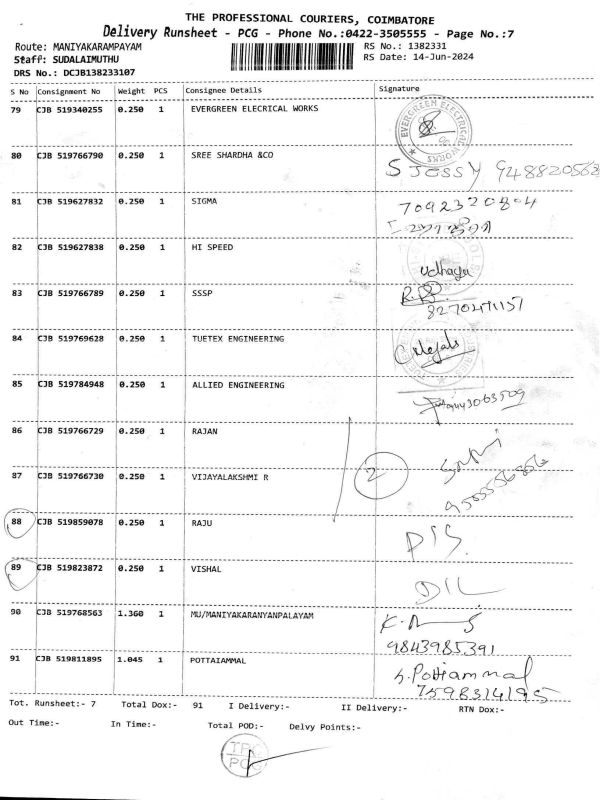 THE PROFESSIONAL COURIERS, COIMBATORE
Delivery Runsheet - PCG - Phone No.:0422-3505555 - Page No.:7
Route: MANIYAKARAMPAYAM RS No.: 1382331
Staff: SUDALAIMUTHU RS Date: 14-Jun-2024
DRS No.: DCJB138233107
S No Consignment No Weight PCS Consignee Details Signature
79 CJB 519340255 0.250 1 EVERGREEN ELECRICAL WORKS EVERGREEN ELECTRICAL WORKS
80 CJB 519766790 0.250 1 SREE SHARDHA &CO S JESSY 948820562
81 CJB 519627832 0.250 1 SIGMA 7092320804
82 CJB 519627838 0.250 1 HI SPEED Udhaya
83 CJB 519766789 0.250 1 SSSP 8270241157
84 CJB 519769628 0.250 1 TUETEX ENGINEERING
85 CJB 519784948 0.250 1 ALLIED ENGINEERING 9443063509
86 CJB 519766729 0.250 1 RAJAN
87 CJB 519766730 0.250 1 VIJAYALAKSHMI R 2
88 CJB 519859078 0.250 1 RAJU D/S
89 CJB 519823872 0.250 1 VISHAL D/L
90 CJB 519768563 1.360 1 MU/MANIYAKARANYANPALAYAM
9843985391
91 CJB 519811895 1.045 1 POTTAIAMMAL S. Pottiammal
7598314195
Tot. Runsheet:- 7 Total Dox:- 91 I Delivery:- II Delivery:- RTN Dox:-
Out Time:- In Time:- Total POD:- Delvy Points:-
TPC
PCG